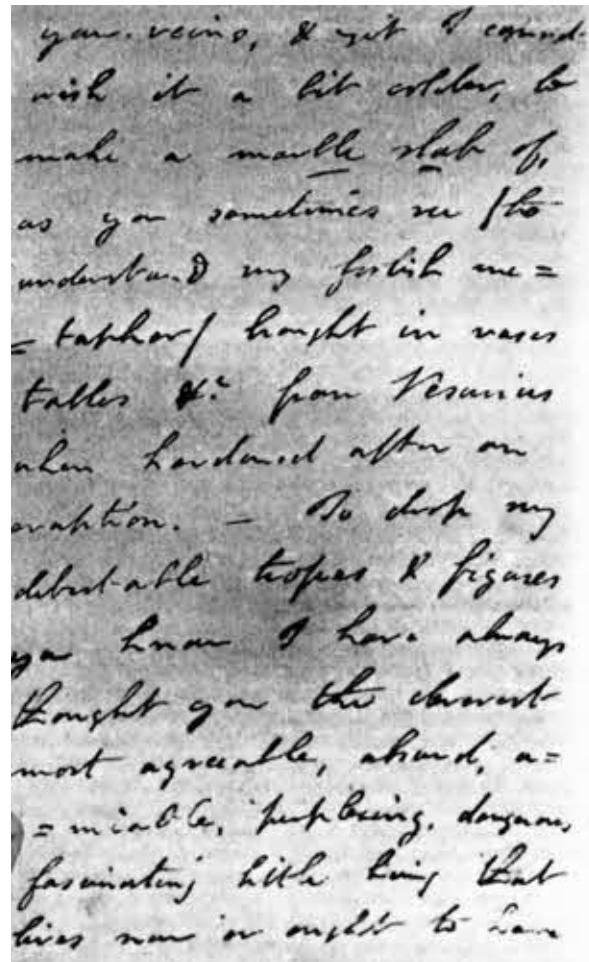 your veins, & yet I cannot
wish it a bit colder, to
make a marble slab of,
as you sometimes see (to
understand my foolish me=
=taphor) brought in vases
tables &c from Vesuvius
when hardened after an
eruption. — To drop my
detestable tropes & figures
you know I have always
thought you the cleverest
most agreeable, absurd, a=
=miable, perplexing, dangerous
fascinating little being that
lives now or ought to have